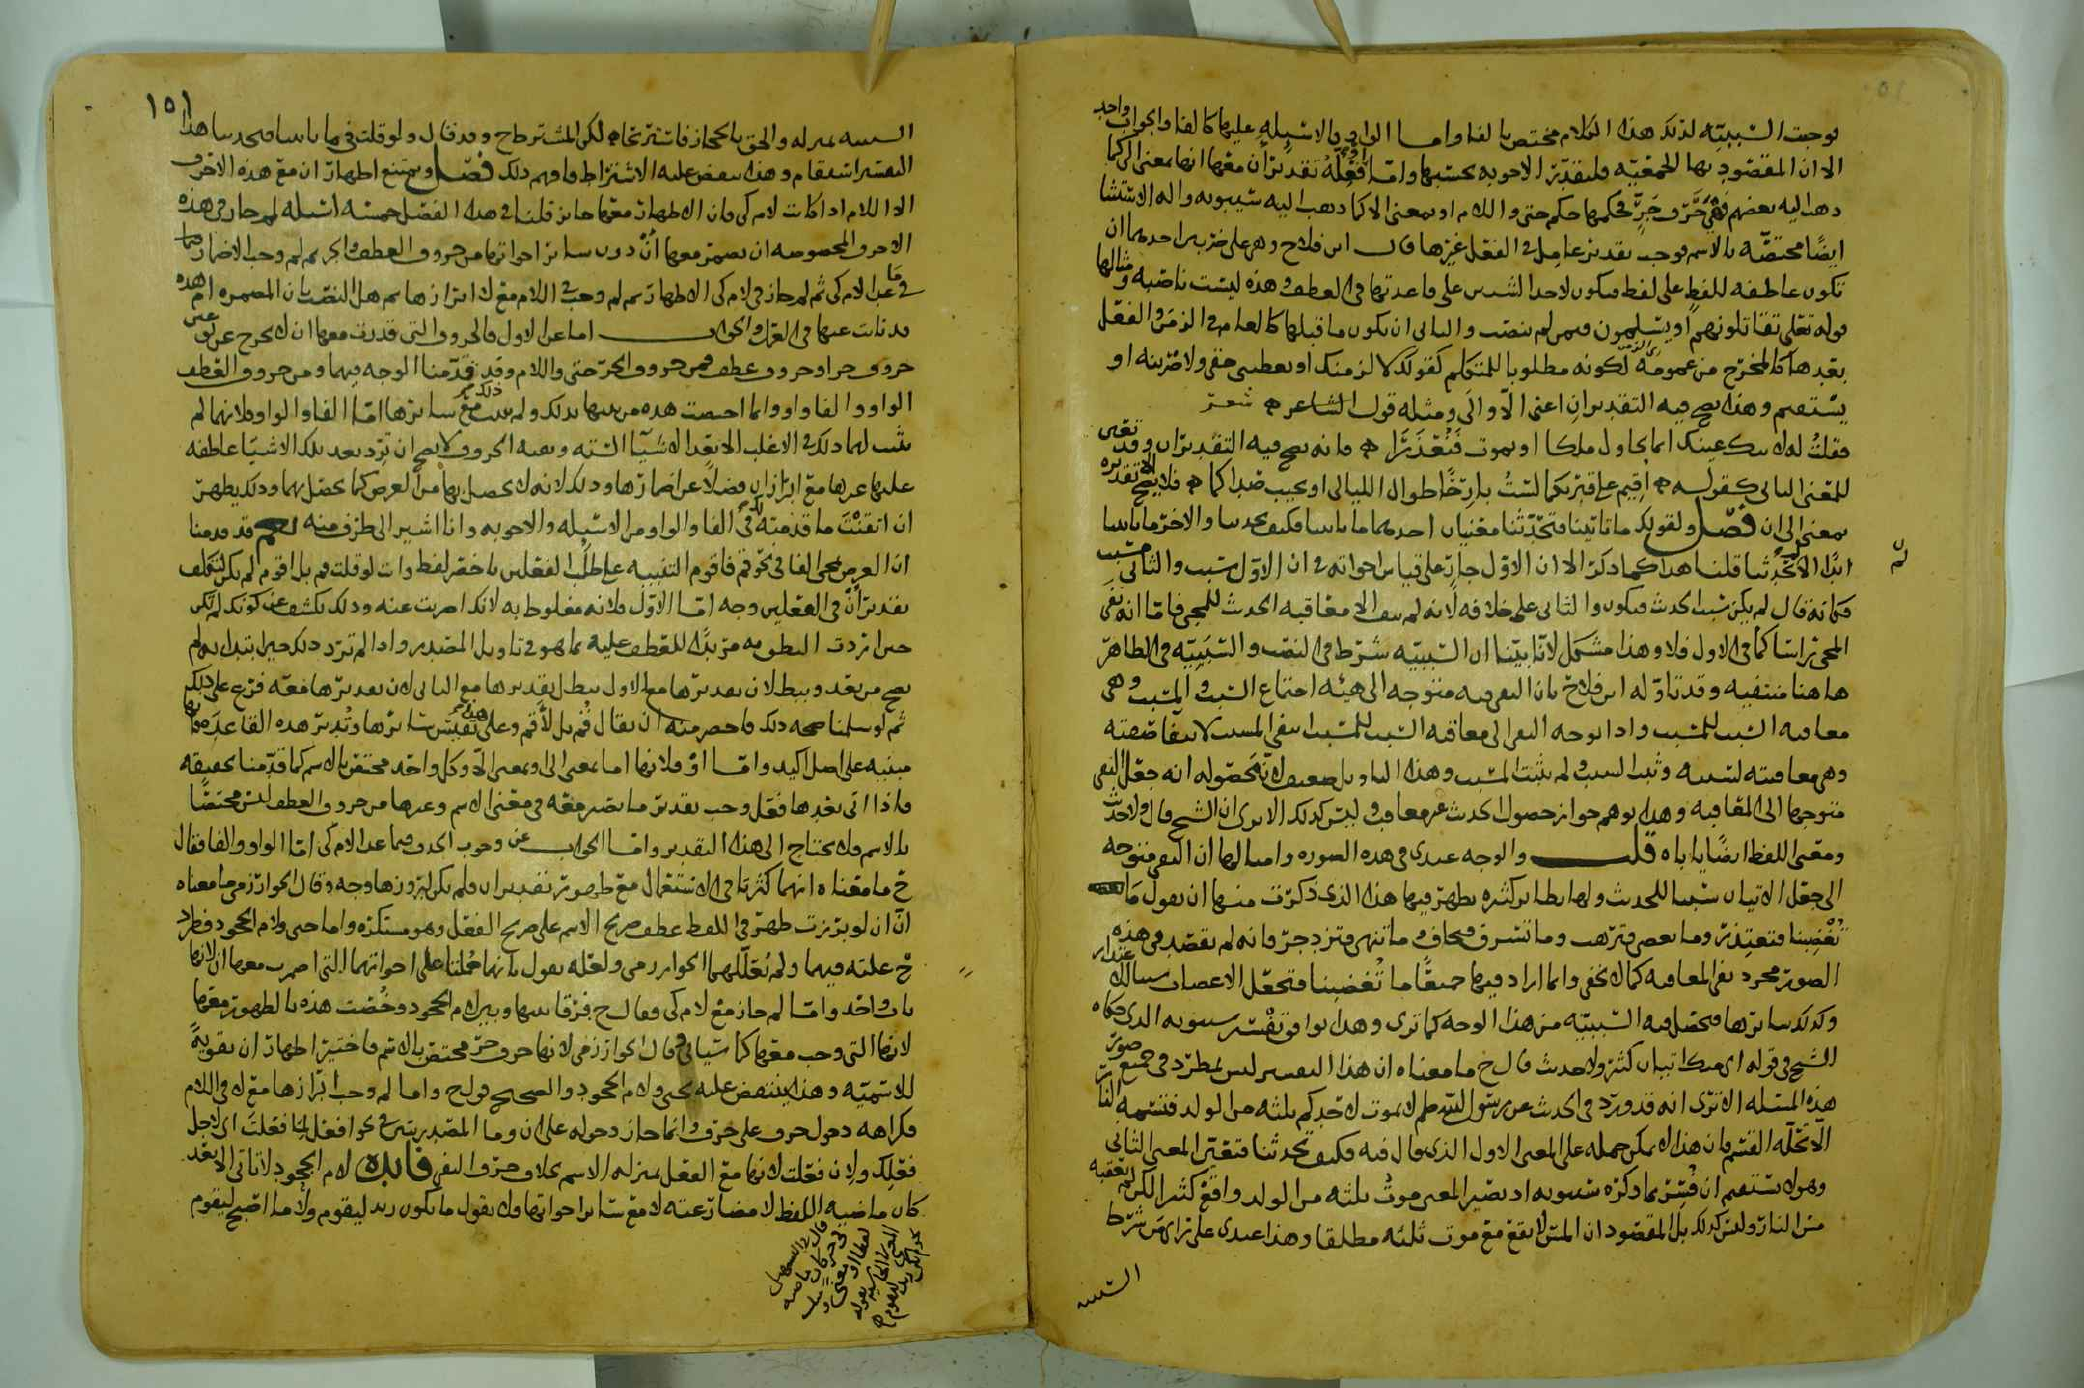 توجبت السببيّه لذلك هذا الكلام مختص بالفا واما الواو في الاشبله عليها كالفا والجواب واحد
الا ان المقصود بها الجمعيّه فليقدّر الاجوبه بحسبها وامّا او فعلّة تقديران معها انها بمعنى الى كما
ذهب اليه بعضهم فهي حرف جرٍّ فحكمها حكم حتى واللام او بمعنى الا كما ذهب اليه سيبويه واله الاستثنا
ايضًا مختصّه بالاسم فوجب تقدير عامل في الفعل غيرها قال ابن فلاح وهي على ضربين احدهما ان
تكون عاطفه للفظٍ على لفظ فيكون لاحد الشيين على قاعدتها في العطف وهذه ليست ناصبه ومثالها
قوله تعلى تقاتلونهم او يسلمون فيمن لم ينصب والثاني ان يكون ما قبلها كالعام في الزمن والفعل
بعدها كالمخرج من عمومه لكونه مطلوبا للمتكلم كقولك لالزمنك او تعطيني حقي ولاضربنه او
يستقيم وهذا يصح فيه التقديران اعني الّا والى ومثله قول الشاعر شعر
فقلت له لا تبك عينك انما نحاول ملكا او نموت فنُعْذَرَا فانه يصح فيه التقديران وقد
للمعنى الثاني كقوله اقيم على قبريكما لستُ بارحًا طوال الليالي او يجيب صداكما فلا يصح الا تقديره
بمعنى الى ان فصل ولقولك ما تاتينا فتحدّثنا معنيان احدهما ما تاتينا فكيف تحدثنا والاخر ما تاتينا
ابدًا الا لم تحدّثنا قلنا هذا كما ذكر الا ان الاوّل جارٍ على قياس اخواته في ان الاوّل سبب والثاني مسبب
فكانه قال لم يكن سبب الحدث فيكون والثاني على خلافه لانه لم ينف الا معاقبه الحدث للمجي فاما انه نفى
المجي راسًا كما في الاول فلا وهذا مشكل لانّا بيّنا ان السببيّه شرط في النصب والسببيّه في الظاهر
هاهنا منتفيه وقد تاوّله ابن فلاح بان النفي فيه متوجه الى هيئه اجتماع السبب والمسبب وهي
معاقبه السبب للمسبب واذا توجه النفي الى معاقبه السبب للمسبب انتفى المسبب لانتفا صفته
وهي معاقبته لسببه وثبت السبب ولم يثبت المسبب وهذا التاويل ضعيف لانّ محصوله انه جعل النفي
متوجها الى المعاقبه وهذا يوهم جواز حصول الحدث غير معاقب وليس كذلك الا ترى ان الشيخ قال ولا حدث
ومعنى اللفظ ايضًا ياباه قلت والوجه عندي في هذه الصوره وامثالها ان النفي متوجه
الى جعل الاتيان سببا للحديث ولها نظاير كثيره يظهر فيها هذا الذي ذكرت منها ان تقول ما
تُغْضِبنا فتعتذر وما تعصي فترهب وما تسرف فتخاف وما تنهى فتزدجر فانه لم يقصد في هذه
الصور مجرد نفي المعاقبه كما لا يخفى وانما اراد فيها جميعًا ما تُغضبنا فتجعل الاغضاب سببا لك
وكذلك سايرها فتحصل فيه السببيّه من هذا الوجه كما ترى وهذا يوافق تفسير سيبويه الذي حكاه
الشيخ في قوله اي منك اتيان كثير ولا حديث قال ما معناه ان هذا التفسير ليس بمطّرد في جميع صور
هذه المسله الا ترى انه قد ورد في الحديث عن رسول الله صلم لا يموت لاحدكم ثلثه من الولد فتمسه النار
الّا تحلّه القسم فان هذا لا يمكن حمله على المعنى الاول الذي قال فيه فكيف تحدثنا فتعيّن المعنى الثاني
وهو لا يستقيم ان فُسّر بما ذكره سيبويه اذ يصير المعنى موتُ ثلثه من الولد واقع كثيرا لكن لم تعقبه
مس النار وليس كذلك بل المقصود ان المس لا يقع مع موت ثلثه مطلقا وهذا عندي على راى من شرط
السببيه
١٥١
السببيه بمنزله والحق بالمجاز فاشتر لكن المشترط ح وقد قال ولو قلت في ما تاتينا فتحدثنا هذا
التفسير استقام وهذا ينقض عليه الاشتراط فافهم ذلك فصل ويمتنع اظهار ان مع هذه الاحرف
الا اللام اذا كانت لام كي فان الاظهار معها جايز قلنا في هذا الفصل خمسه اسئله لم جاز في هذه
الاحرف المخصوصه ان تضمر معها أنْ دون ساير اخواتها من حروف العطف والجر ثم لم وجب الاضمار فيها
في ما عدا لام كي ثم لم جاز في لام كي الاظهار ثم لم وجب في اللام مع لا ابرازها ثم هل النصب بان المضمره ام هذه
قد نابت عنها في العمل والجواب اما عن الاول فالحروف التي قدرت معها ان لا تخرج عن
حروف جر او حروف عطف فمن حروف الجرّ حتى واللام وقد قدّمنا الوجه فيهما ومن حروف العطف
الواو والفا واو وانما اختصت هذه من بينها بذلك ولم يثبت ذلك مع سايرها امّا الفا والواو فلانهما لم
يثبت لهما ذلك في الاغلب الا بعد الاشيآ الستّه وبقيه الحروف لا يصح ان ترد بعد تلك الاشيآ عاطفه
عليها غيرها مع ابراز ان فضلًا عن اضمارها وذلك لانه لا يحصل بها من الغرض كما يحصل بهما وذلك يظهر
ان اتقنْتَ ما قدّمته لك في الفا والواو من الاسئله والاجوبه وانا اشير الى طرف منه قد قدمنا
ان الغرض بمجي الفا في نحو قم فاقوم التنبيه على طلب الفعلين باخصر لفظ وانت لو قلت قم بل اقوم لم يكن لتكلف
تقدير أنْ في الفعلين وجه امّا الاوّل فلانه مغلوط به لانك اضربت عنه وذلك يكشف عن كونك لم تكن
حين اردت النطق به مريدًا للعطف عليه بما هو في تاويل المصدر واذا لم ترد ذلك حين ابتدات به لم
يصح من بعد ويبطل لان تقديرها مع الاول يبطل تقديرها مع الثاني لان تقديرها معه فرع على ذلك
ثم لو سلمنا صحه ذلك فاخصر منه ان يقال قُم بل لأقم وعلى هذا فقس سايرها وتُدبّر هذه القاعدَه فانها
مبنيه على اصل اكيد وامّا او فلانها اما بمعنى الى او بمعنى الّا وكل واحد مختص بالاسم كما قدّمنا تحقيقه
فاذا اتى بعدها فعل وجب تقدير ما يصير معه في معنى الاسم وغيرها من حروف العطف ليس مختصًّا
بالاسم فلا يحتاج الى هذا التقدير وامّا الجواب عن وجوب الحذف فيما عدا لام كي امّا الواو والفا فقال
ما معناه انهما كثرتا في الاستعمال مع ظهور تقدير ان فلم يكن لبروزها وجه وقال الخوارزمي ما معناه
انّ ان لو برزت ظهر في اللفظ عطف صريح الاسم على صريح الفعل وهو مستكره واما حتى ولام الجحود فطرد
علته فيهما ولم يُعلّلهما الخوارزمي ولعلّه يقول بانهما حُملتا على اخواتهما التي اضمرت معها ان لانها
باب واحد وامّا لم جاز مع لام كي فقال فرقا بينها وبين لام الجحود وخُصّت هذه بالظهور معها
لانها التي وجب معها كما سياتي وقال الخوارزمي لانها حرف جرّ مختص بالاسم فاختير اظهار ان تقويةً
للاسميّه وهذا ينتقض عليه بحتى ولام الجحود والصحيح قول واما لم وجب ابرازها مع لا في اللام
فكراهه دخول حرف على حرف وانما جاز دخوله على ان وما المصدريتين في نحو افعل لما فعلتَ اي لاجل
فعلك ولان فعلت لانها مع الفعل بمنزله الاسم بخلاف حرف النفي فايده لام الجحود لا تاتي الا بعد
كان ماضيه اللفظ لا مضارعته لا مع ساير اخواتها ولا يقول ما يكون زيد ليقوم ولا ما اصبح ليقوم